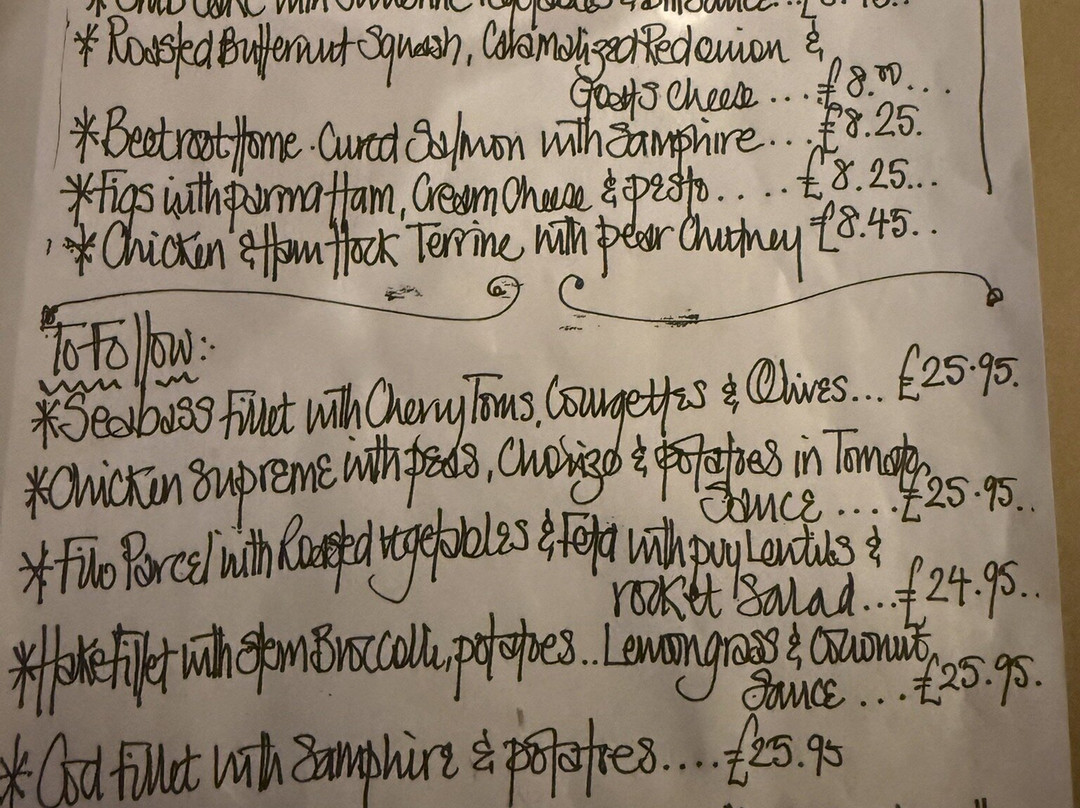 * Crab Cake with
* Roasted Butternut Squash, Caramalized Red onion &
Goats Cheese ... £8.00...
* Beetroot Home-Cured Salmon with Samphire... £8.25.
* Figs with parma Ham, Cream Cheese & pesto..... £8.25...
* Chicken & Ham Hock Terrine with pear Chutney £8.45..
To Follow:-
* Seabass Fillet with Cherry Toms, Courgettes & Olives... £25.95.
* Chicken Supreme with peas, Chorizo & potatoes in Tomato
Sauce .... £25.95..
* Filo Parcel with Roasted vegetables & Feta with puy Lentils &
rocket Salad... £24.95..
* Hake fillet with Stem Broccolli, potatoes.. Lemongrass & Coconut
Sauce ... £25.95.
* Cod fillet with Samphire & potatoes.... £25.95